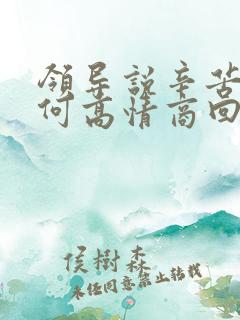 領导說辛苦
何高情商回
侯樹森
未任同意禁止转载